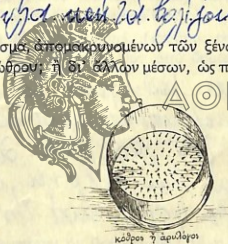 σμα, ἀπομακρυνομένων τῶν ξένω
ώθρου; ἢ δι' ἄλλων μέσων, ὡς π
ΑΘ
κόθρος ἢ ἀριλόγος